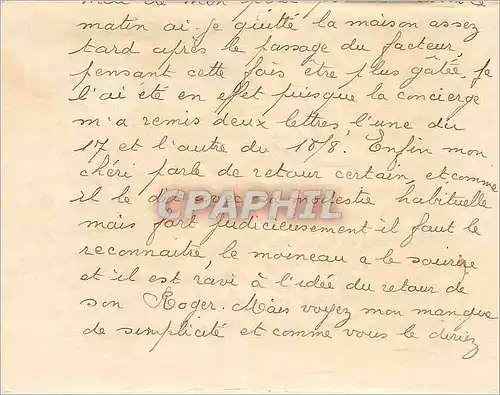 de mon
matin ai-je quitté la maison assez
tard après le passage du facteur,
pensant cette fois être plus gâtée, je
l'ai été en effet puisque la concierge
m'a remis deux lettres, l'une du
17 et l'autre du 18/8. Enfin mon
chéri parle de retour certain, et comme
il le dit avec sa modestie habituelle
mais fort judicieusement il faut le
reconnaitre, le moineau a le sourire
et il est ravi à l'idée du retour de
son Roger. Mais voyez mon manque
de simplicité et comme vous le diriez
CPAPHIL